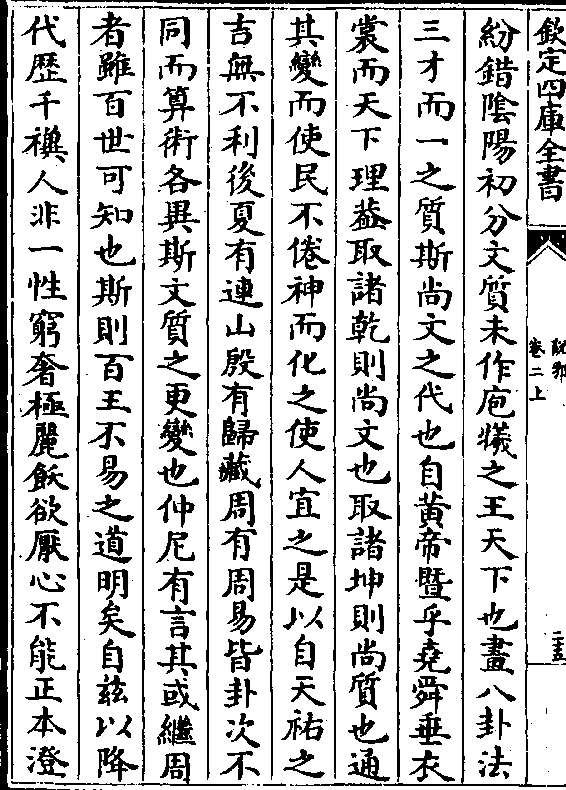 欽定四庫全書
說郛
卷二上
二五
紛錯陰陽初分文質未作庖犧之王天下也畫八卦法
三才而一之質斯尚文之代也自黃帝暨乎堯舜垂衣
裳而天下理葢取諸乾則尚文也取諸坤則尚質也通
其變而使民不倦神而化之使人宜之是以自天祐之
吉無不利後夏有連山殷有歸藏周有周易皆卦次不
同而算術各異斯文質之更變也仲尼有言其或繼周
者雖百世可知也斯則百王不易之道明矣自兹以降
代歷千禩人非一性窮奢極麗飫欲厭心不能正本澄